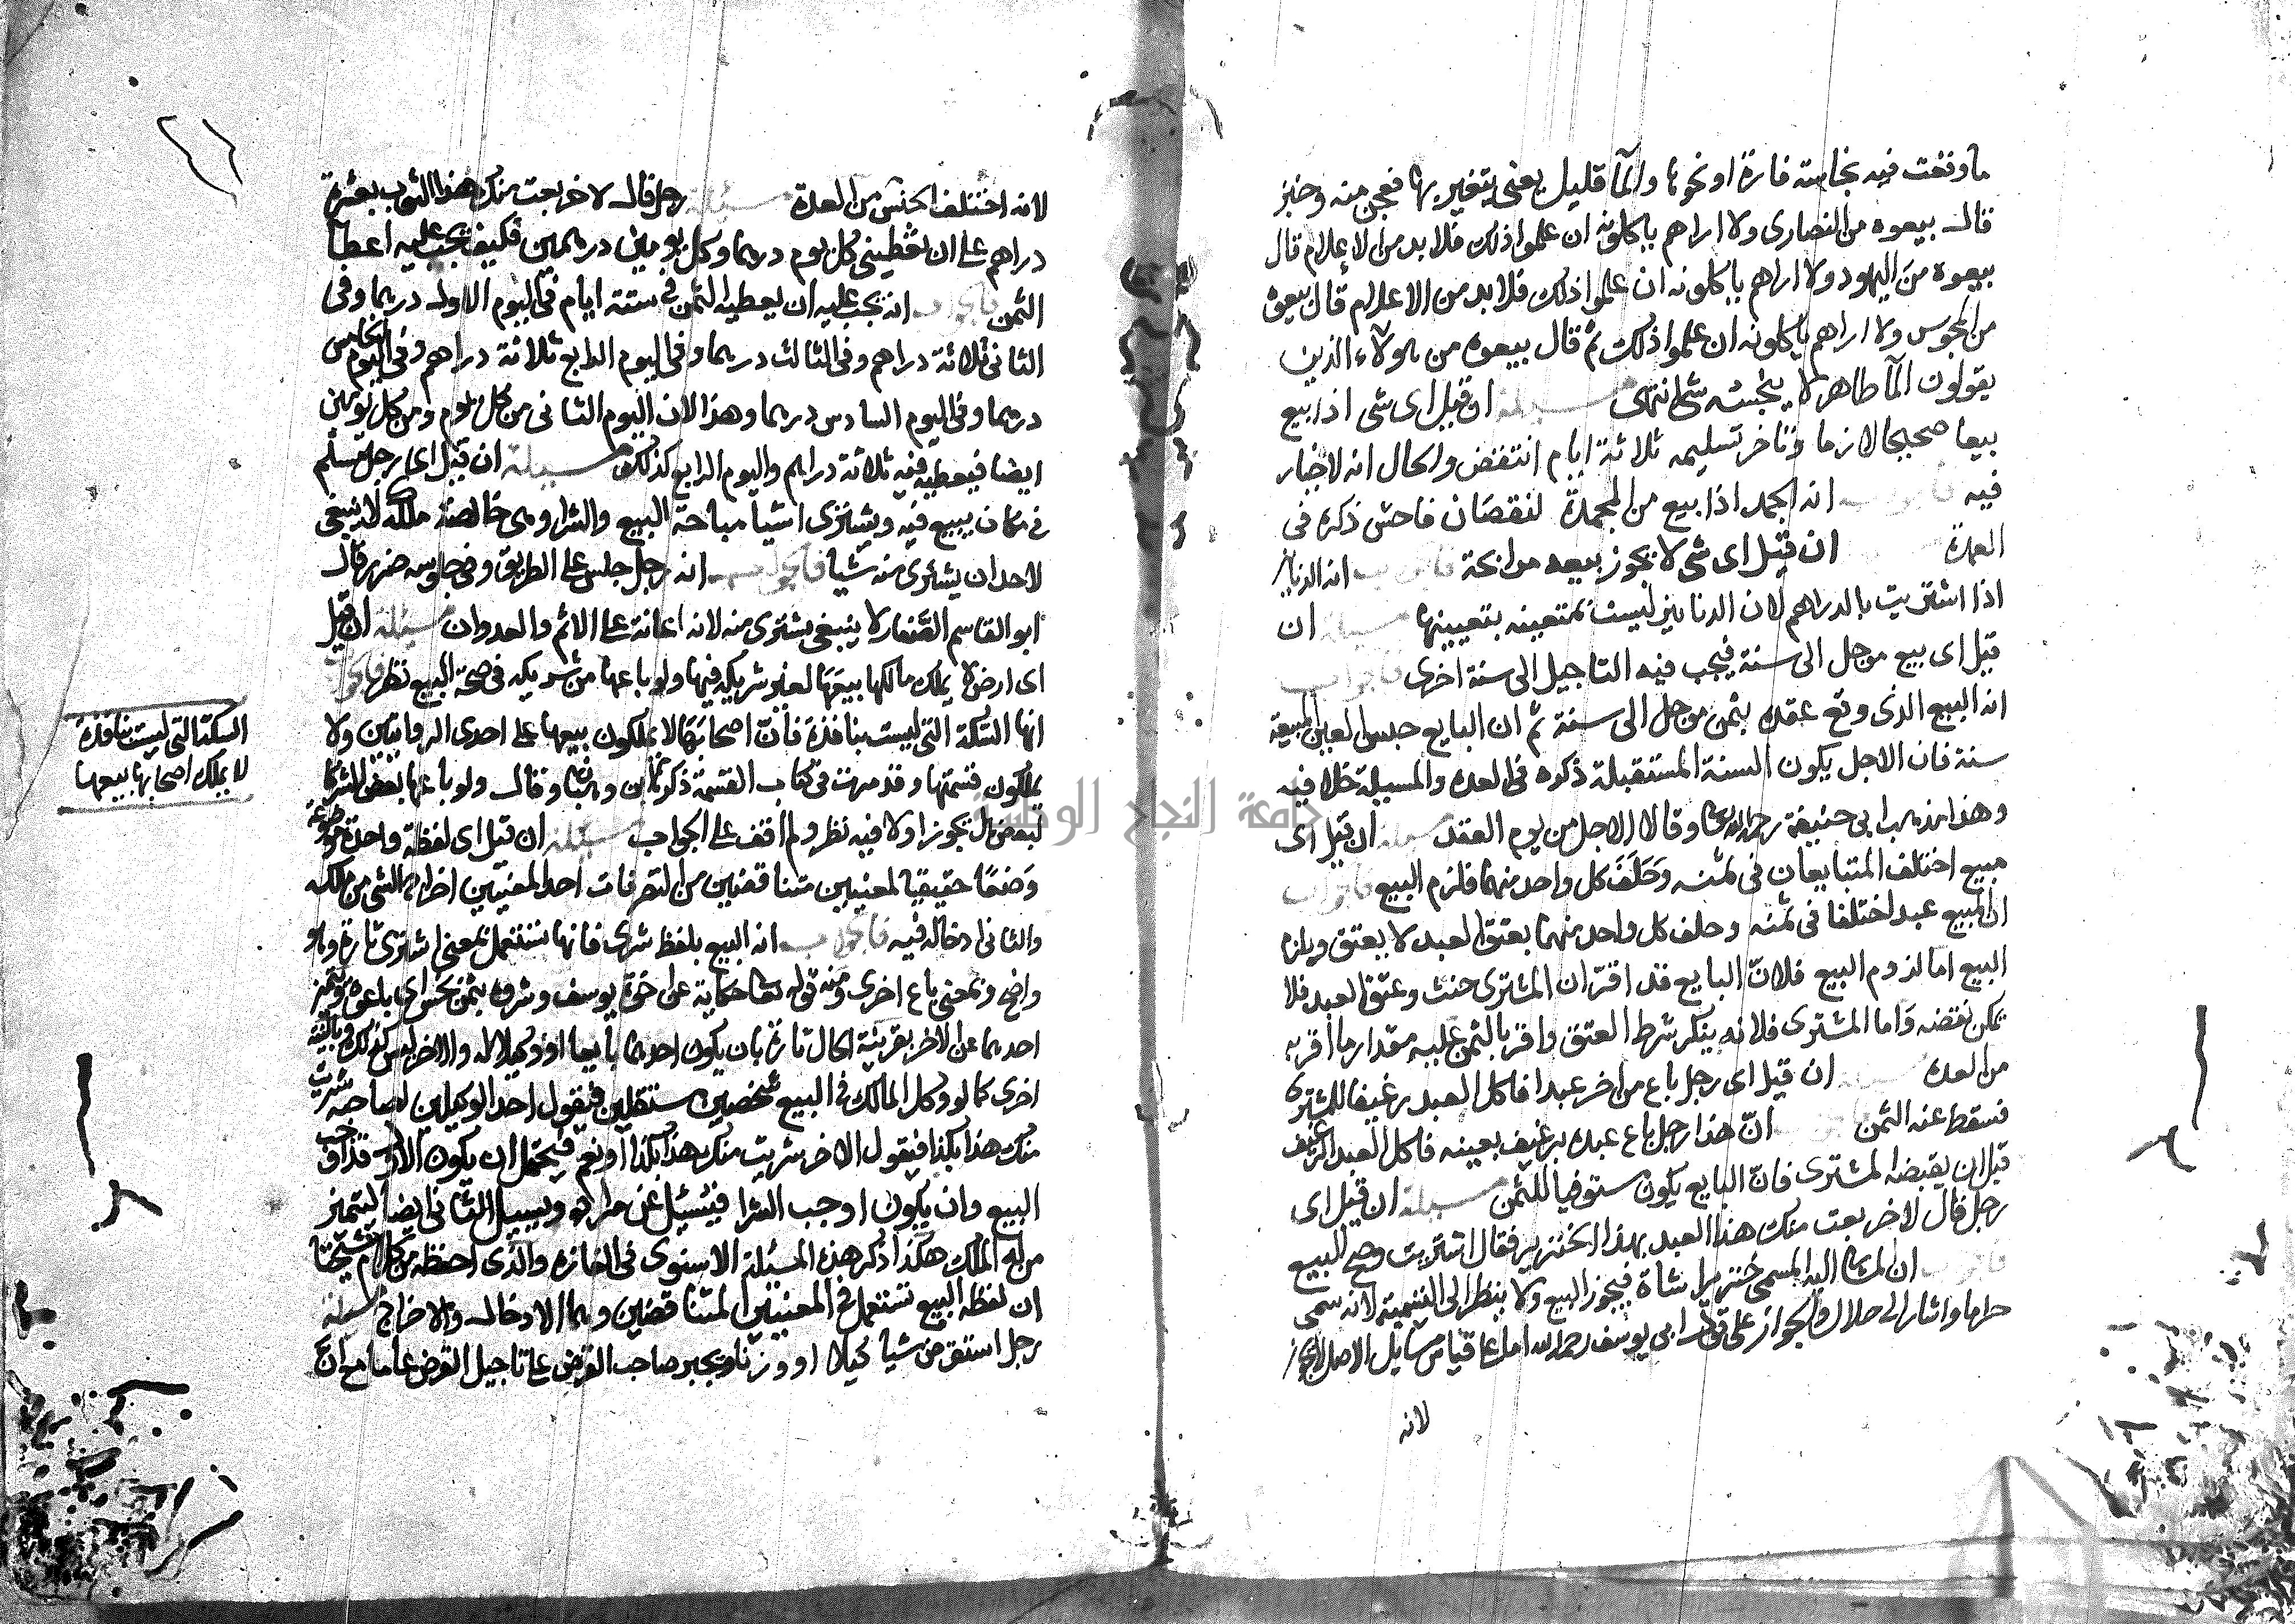 ما وقعت فيه نجاسة فارة او نحوها والمآ قليل يعنى يتغير بها فعجن منه وخبز
قال بيعوه من النصارى ولا اراهم ياكلونه ان علموا ذلك فلا بد من الاعلام قال
بيعوه من اليهود ولا اراهم ياكلونه ان علموا ذلك فلا بد من الاعلام قال بيعوه
من المجوس ولا اراهم ياكلونه ان علموا ذلك ثم قال بيعوه من هولاء الذين
يقولون المآ طاهر لا ينجسه شى انتهى مسيلة ان قيل اى شى اذا بيع
بيعا صحيحا لازما وتاخر تسليمه ثلاثة ايام انتقض والحال انه لا خيار
فيه فالجواب انه الجمد اذا بيع من المجمدة لنقصان فاحش ذكره فى
العدة ان قيل اى شى لا يجوز بيعه مرابحة فالجواب انه الدنانير
اذا اشتريت بالدراهم لان الدنانير ليست بمتعينه بتعيينها مسيلة ان
قيل اى بيع موجل الى سنة فيجب فيه التاجيل الى سنة اخرى فالجواب
انه البيع الذى وقع عقده بثمن موجل الى سنة ثم ان البايع حبس العين المبيعة
سنة فان الاجل يكون السنة المستقبلة ذكره فى العده والمسيلة خلافيه
وهذا مذهب ابى حنيفة رحمه الله تعالى وقالا الاجل من يوم العقد مسيلة ان قيل اى
مبيع اختلف المتبايعان فى ثمنه وحلف كل واحد منهما فلزم البيع فالجواب
ان المبيع عبد اختلفا فى ثمنه وحلف كل واحد منهما بعتق العبد لا يعتق ويلزم
البيع اما لزوم البيع فلان البايع قد اقر ان المشترى حنث وعتق العبد فلا
يمكن نقضه واما المشترى فلانه ينكر شرط العتق واقر بالثمن عليه مقدار ما اقر به
من العده مسيلة ان قيل اى رجل باع من اخر عبدا فاكل العبد رغيفا للمشترى
فسقط عنه الثمن ان هذا رجل باع عبده برغيف بعينه فاكل العبد الرغيف
قبل ان يقبضه المشترى فان البايع يكون مستوفيا للثمن مسيلة ان قيل اى
رجل قال لاخر بعت منك هذا العبد بهذا الخنزير فقال اشتريت وصح البيع
فالجواب ان المشار اليه المسمى خنزيرا شاة فيجوز البيع ولا ينظر الى التسمية لانه سمى
حراما واشار الى حلال والجواز على قول ابى يوسف رحمه الله اما على قياس مسايل الاصل لا يجوز
لانه
لانه اختلف الجنس من العدة مسيلة رجل قال لاخر بعت منك هذا الثوب بعشرة
دراهم على ان تعطينى كل يوم درهما وكل يومين درهمين فكيف يجب عليه اعطآ
الثمن فالجواب انه يجب عليه ان يعطيه الثمن فى ستة ايام فى اليوم الاول درهما وفى
الثانى ثلاثة دراهم وفى الثالث درهما وفى اليوم الرابع ثلاثة دراهم وفى اليوم الخامس
درهما وفى اليوم السادس درهما وهذا لان اليوم الثانى من كل يوم ومن كل يومين
ايضا فيعطيه فيه ثلاثة دراهم واليوم الرابع كذلك مسيلة ان قيل اى رجل مسلم
فى مكان يبيع فيه ويشترى اشيا مباحة البيع والشرا وهى خالصة ملكه لا ينبغى
لاحد ان يشترى منه شيا فالجواب انه رجل جلس على الطريق وفى جلوسه ضرر قال
ابو القاسم الصفار لا ينبغى يشترى منه لانه اعانة على الاثم والعدوان مسيلة ان قيل
اى ارض لا يملك مالكها بيعها لغير شريكه فيها ولو باعها من شريكه فى صحة البيع نظر فالجواب
انها السكة التى ليست بنافذة فان اصحابها لا يملكون بيعها على احدى الروايتين ولا
يملكون قسمتها وقد مرت فى كتاب القسمة ذكر وقال ولو باعها بعض الشركا
لبعض هل تجوز اولا فيه نظر ولم اقف على الجواب مسيلة ان قيل اى لفظة واحدة موضوعة
وضعا حقيقيا لمعنيين متناقضين من التصرفات احد المعنيين اخراج الشى من ملكه
والثانى ادخاله فيه فالجواب انه البيع بلفظ شرى فانها تستعمل بمعنى اشترى تارة وهو
واضح وبمعنى باع اخرى ومنه قوله تعالى حكاية عن اخوة يوسف وشروه بثمن بخس اى باعوه ويتميز
احدهما عن الاخر بقرينة الحال تارة بان يكون احدهما بايعا او وكيلا له والاخر ليس كذلك وبالنية
اخرى كما لو وكل المالك فى البيع شخصين مستقلين فيقول احد الوكيلين لصاحبه شريت
منك هذا بكذا فيقول الاخر شريت منك هذا بكذا او نعم فيحتمل ان يكون الاول قد اوجب
البيع وان يكون اوجب الشرا فيسيل عن مراده ويسيل الثانى ايضا ليتميز
من له الملك هكذا ذكر هذه المسئلة الاسنوى فى الغازه والذى احفظه من كلام شيخنا
ان لفظه البيع تستعمل فى المعنيين المتناقضين وهما الادخال والاخراج مسيلة
رجل استقرض شيا كيلا او وزنا ويجبر صاحب القرض على تاجيل القرض عاما مع ان
السكة التى ليست بنافذة
لا يملك اصحابها بيعها
جامعة النجاح الوطنية